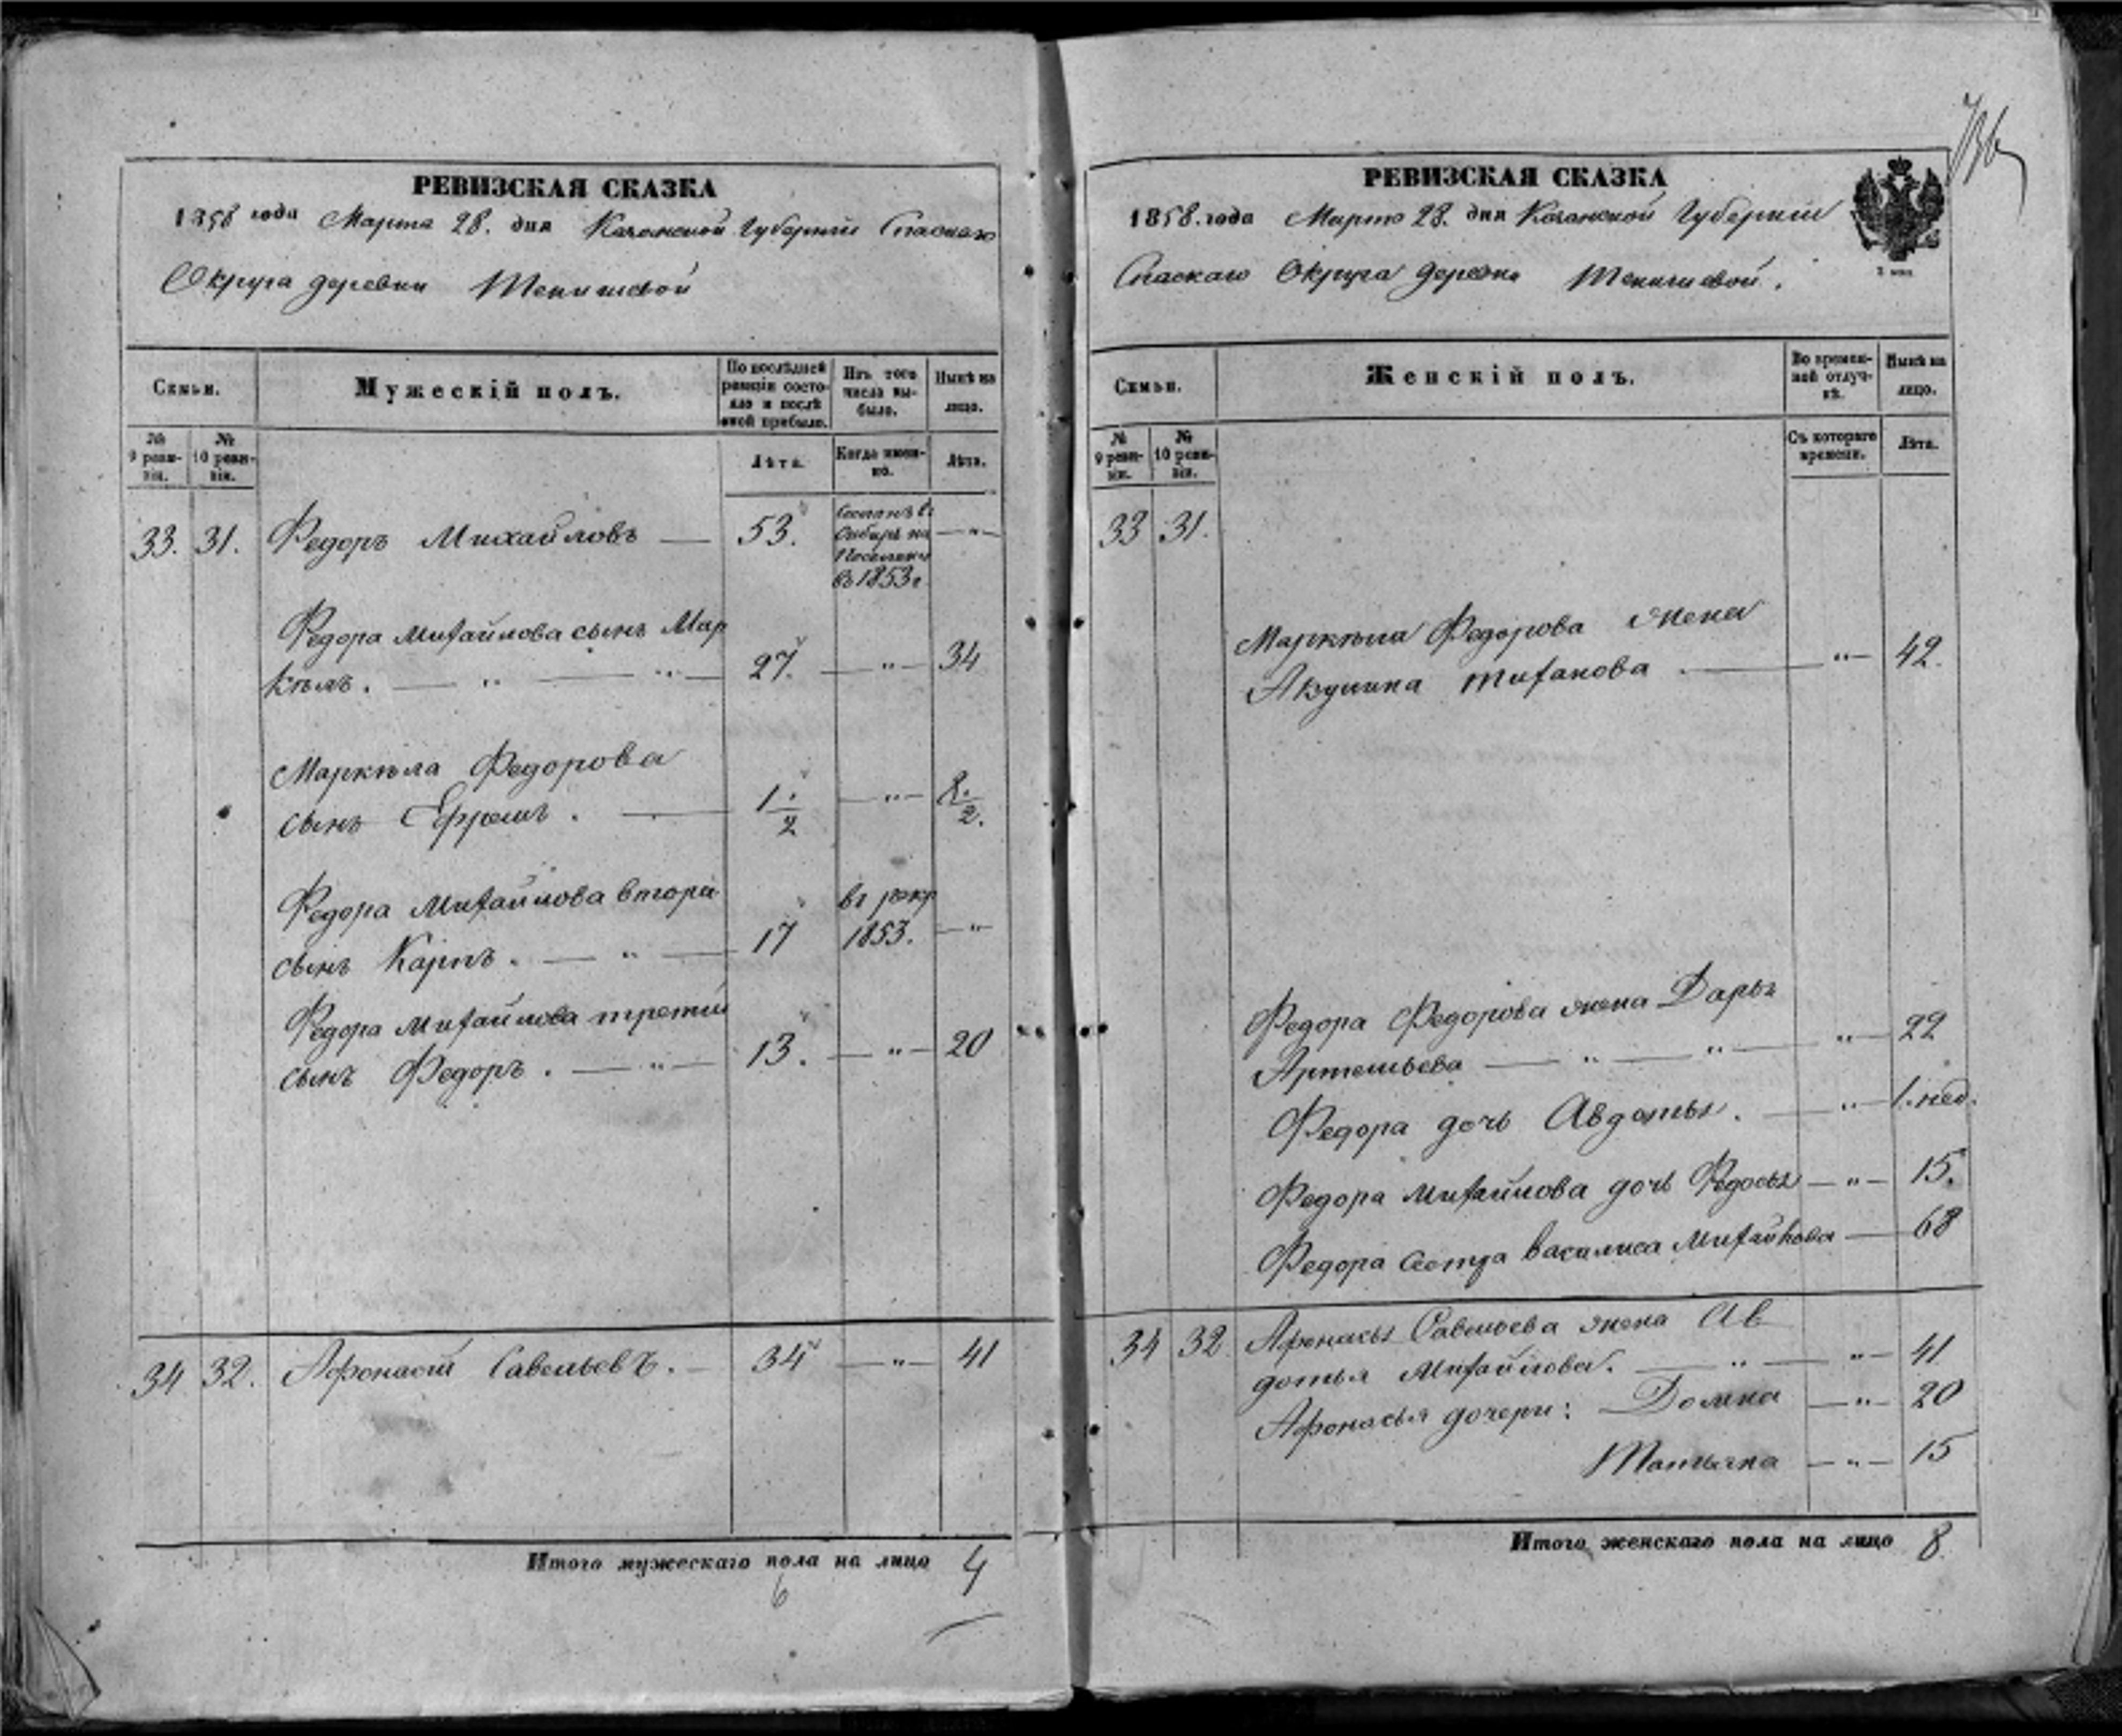 РЕВИЗСКАЯ СКАЗКА
1858 года Марта 28. дня Казанской Губернiи Спаскаго
Округа деревни Тенишевой
Семьи.
Мужескiй полъ.
По послѣдней ревизiи состояло и послѣ оной прибыло.
Изъ того числа выбыло.
Нынѣ на лицо.
№ 9 ревизiи.
№ 10 ревизiи.
Лѣта.
Когда именно.
Лѣта.
33. 31. Федоръ Михайловъ — 53. Сосланъ въ Сибирь на Поселенiе въ 1853 г. — " —
Федора Михайлова сынъ Мар
кѣлъ. — " — " — 27. — " — 34
Маркѣла Федорова
сынъ Ефремъ. — 1./2 — " — 8./2.
Федора Михайлова второй
сынъ Карпъ. — " — 17 въ рекр 1853. — "
Федора Михайлова третiй
сынъ Федоръ. — " — 13. — " — 20
34 32. Афонасiй Савельевъ. — 34 — " — 41
Итого мужескаго пола на лицо 4
6
РЕВИЗСКАЯ СКАЗКА
1858. года Марта 28. дня Казанской Губернiи
Спаскаго Округа деревни Тенишевой.
2 коп
Семьи.
Женскiй полъ.
Во временной отлучкѣ.
Нынѣ на лицо.
№ 9 ревизiи.
№ 10 ревизiи.
Съ котораго времени.
Лѣта.
33 31.
Маркѣла Федорова жена
Акулина — " — 42.
Федора Федорова жена Дарья
Артемьева — " — " — " — 22
Федора дочь Авдотья. — " — 1. нед.
Федора Михайлова дочь Федосья — " — 15.
Федора Сестра Василиса Михайлова — 68
34 32 Афонасья Савельева жена Ав
дотья Михайлова. — " — " — 41
Афонасья дочери: Домна — " — 20
Татьяна — " — 15
Итого женскаго пола на лицо 8